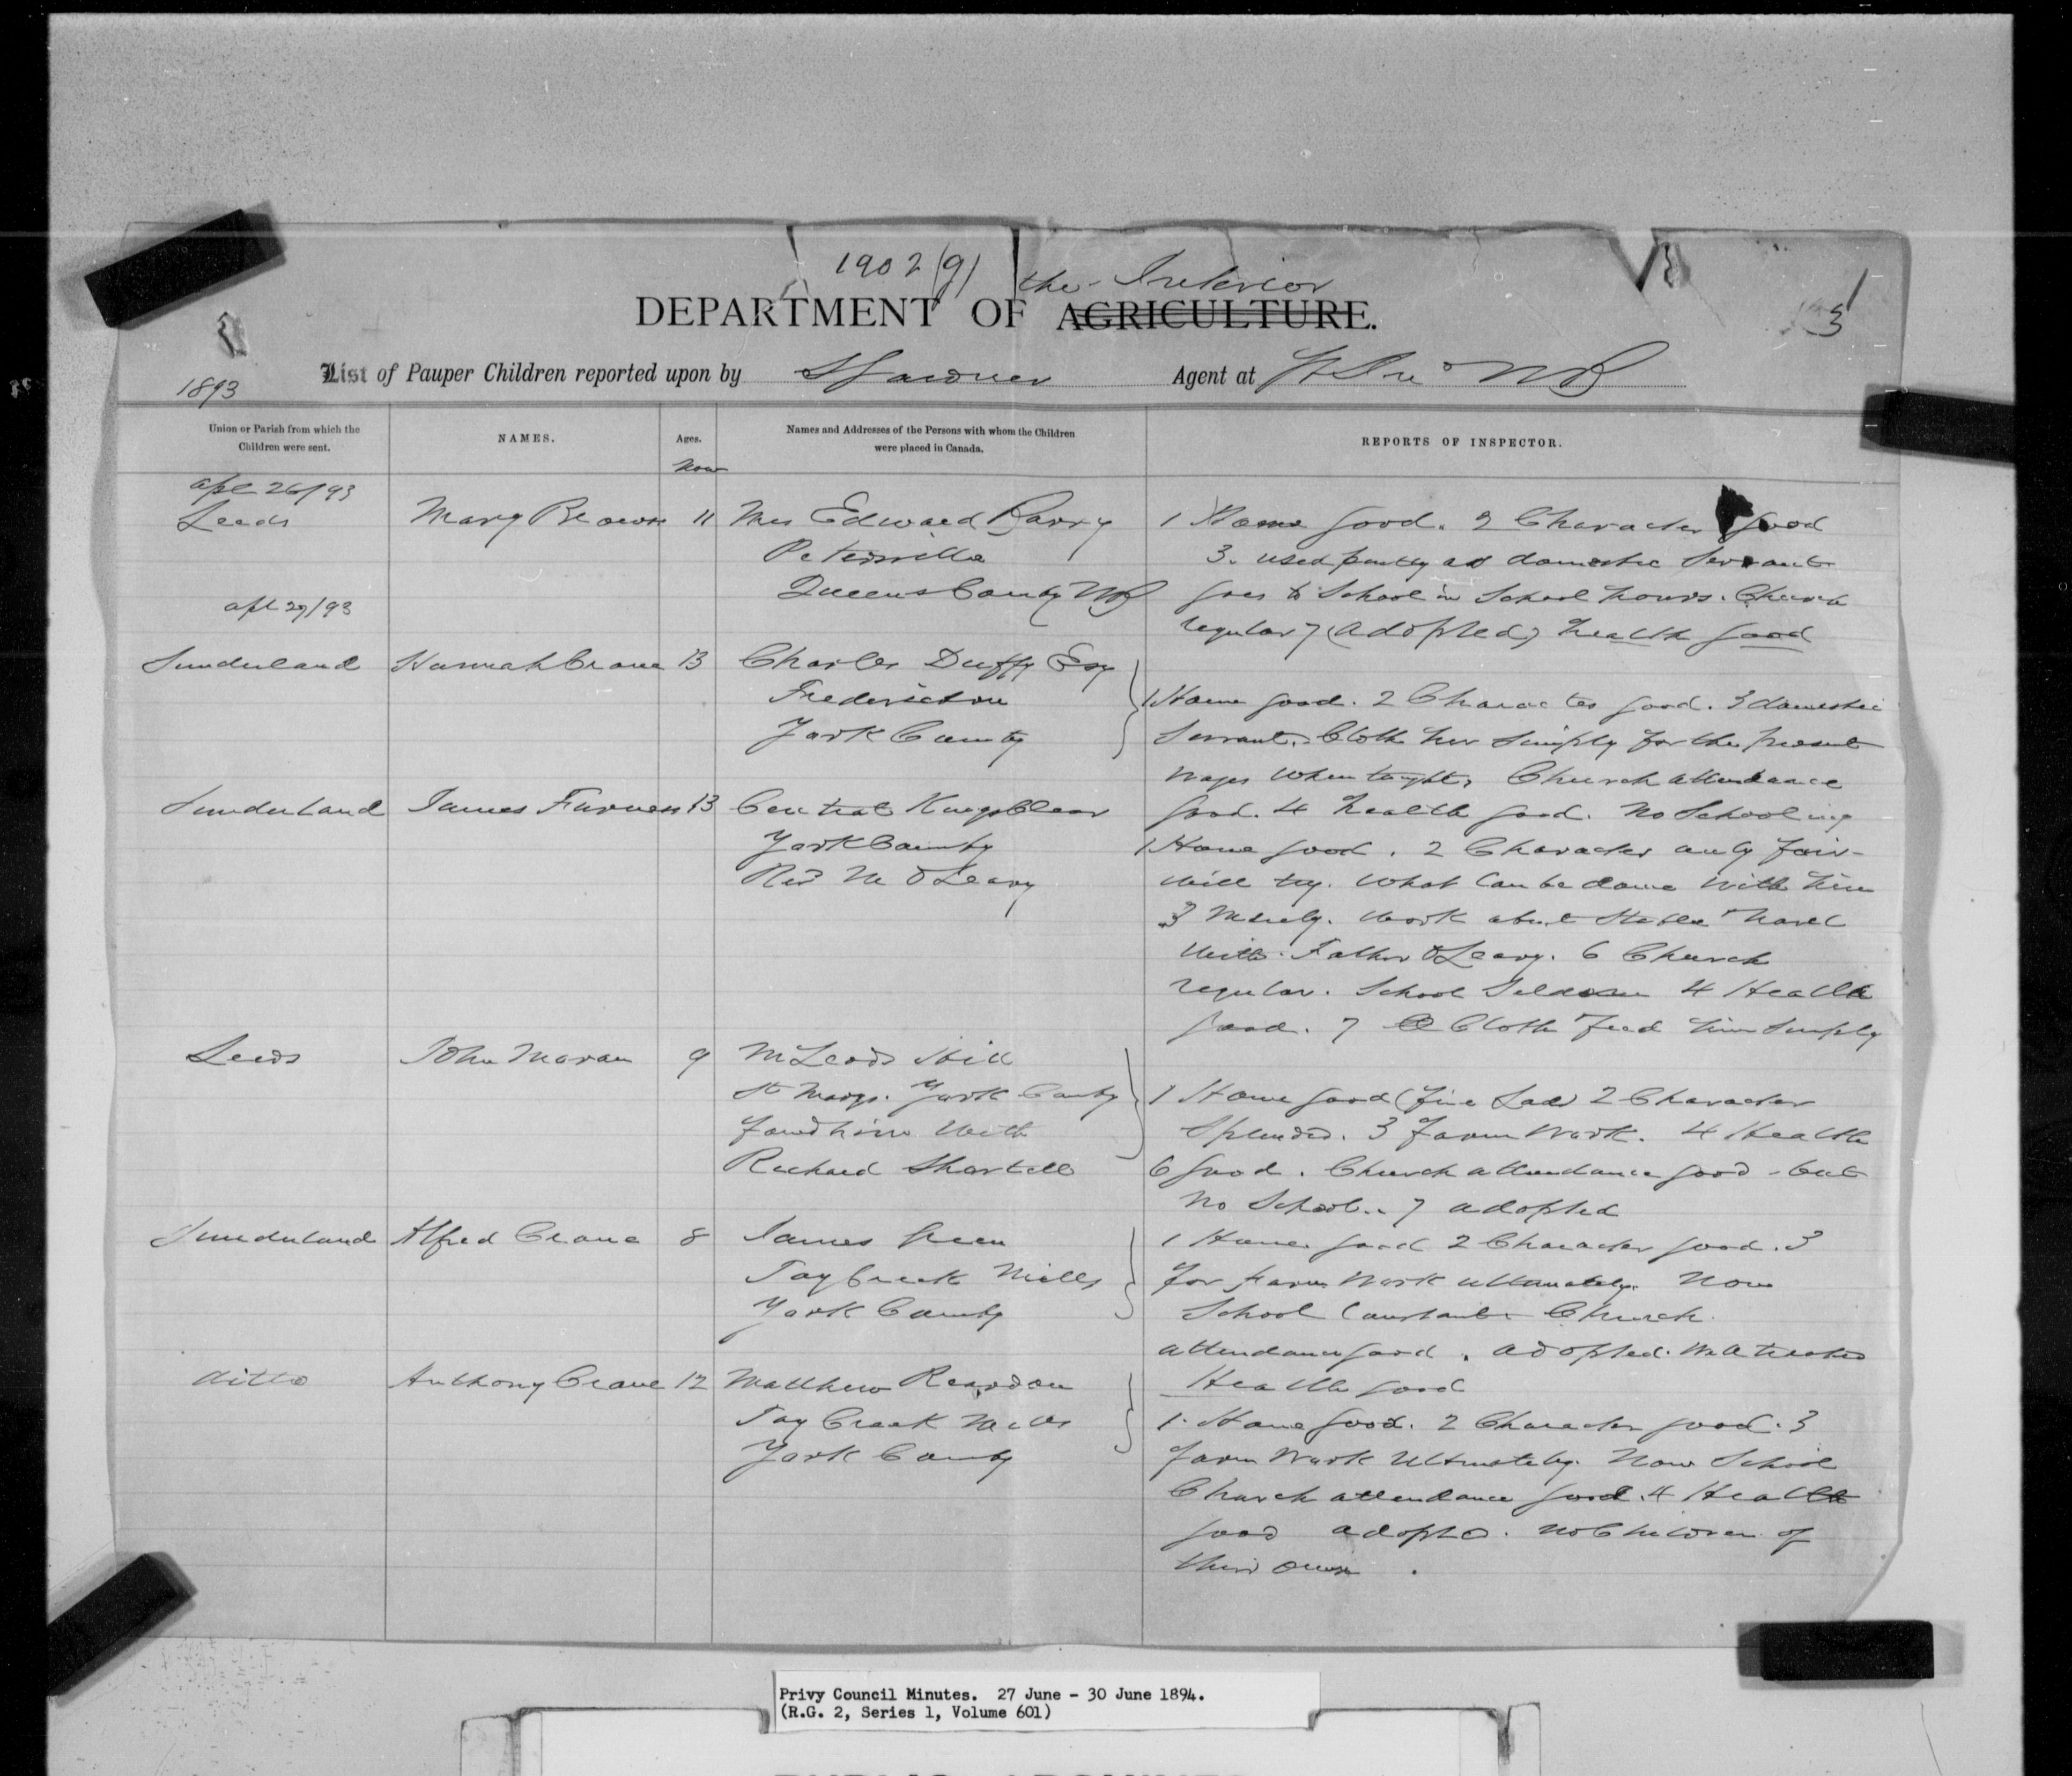 1902 g
the Interior
DEPARTMENT OF AGRICULTURE.
1
3
List of Pauper Children reported upon by S Gardner Agent at St NB
1893
Union or Parish from which the Children were sent.
NAMES.
Ages.
Now
Names and Addresses of the Persons with whom the Children were placed in Canada.
REPORTS OF INSPECTOR.
Apl 26/93
Leeds Mary Brown 11 Mrs Edward Barry
Petersville
Queens County NB
1 Home good. 2 Character good
3. used partly as domestic Servant
goes to School in School hours. Church
regular 7 (adopted) health good
Apl 29/93
Sunderland Hannah Crane 13 Charles Duffy Esq
Fredericton
York County
1 Home good. 2 Character good. 3 domestic
Servant. Cloth her simply for the present
wages when taught, Church attendance
good. 4 health good. No Schooling
Sunderland James Furness 13 Central Kingsclear
York County
Revd M O'Leary
1 Home good. 2 Character only fair
will try. What can be done with him
3 Merely. work about Stable travel
with Father O'Leary. 6 Church
regular. School Seldom 4 Health
good. 7 Cloth feed him simply
Leeds John Moran 9 McLeods Hill
St Marys. York County
found him with
Richard Shortell
1 Home good (fine Lad) 2 Character
Splendid. 3 farm work. 4 Health
6 good. Church attendance good - but
no School.. 7 adopted
Sunderland Alfred Crane 8 James Green
Tay Creek Mills
York County
1 Home good 2 Character good. 3
for farm work ultimately. Now
School Constant Church
attendance good. adopted. Well treated
Health good
ditto Anthony Crane 12 Matthew Reardon
Tay Creek Mills
York County
1. Home good. 2 Character good. 3
farm work Ultimately. Now School
Church attendance good. 4 Health
good adopted. No Children of
their own.
Privy Council Minutes. 27 June - 30 June 1894.
(R.G. 2, Series 1, Volume 601)